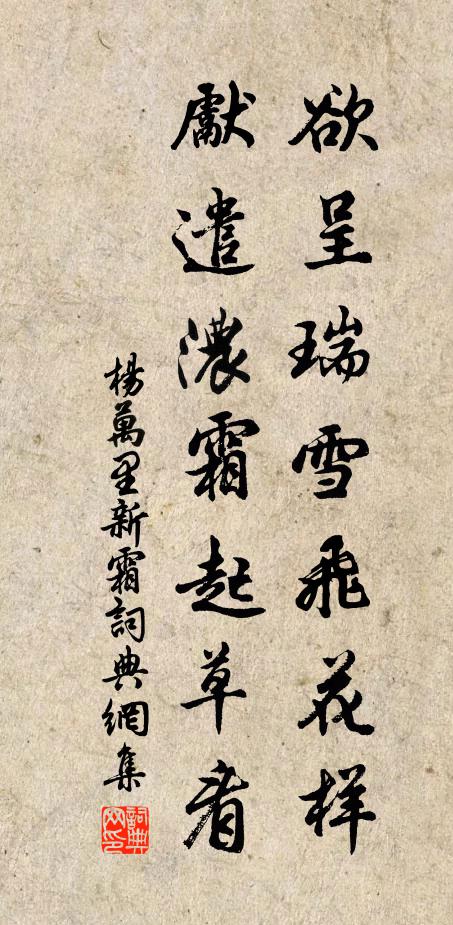 欲呈瑞雪飛花樣
獻遣濃霜起草看
楊萬里新霜詞典網集
詞典
网印